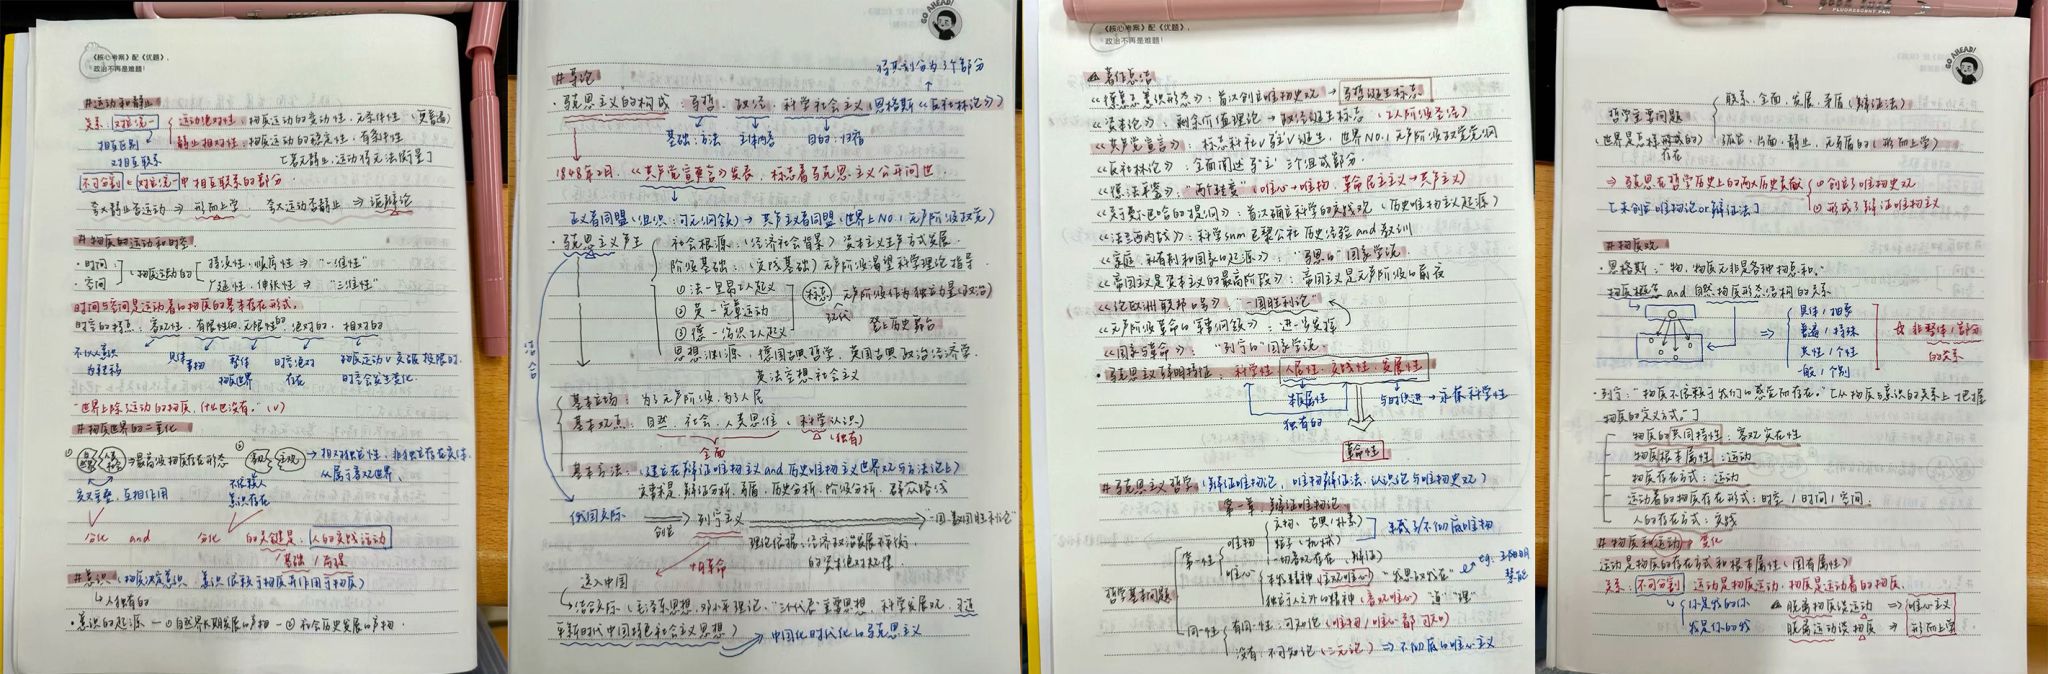 《核心考案》配《优题》，
政治不再是难题！
#运动和静止
关系：对立统一
运动绝对性：物质运动的变动性，无条件性
静止相对性：物质运动的稳定性，有条件性
相互区别
又相互联系
[若无静止，运动将无法衡量]
不可分割 对立统一中相互联系的部分
夸大静止否运动 ⇒ 形而上学 夸大运动否静止 ⇒ 诡辩论
#物质的运动和时空
·时间
·空间
物质运动的
持续性，顺序性 ⇒ "一维性"
广延性，伸张性 ⇒ "三维性"
时间与空间是运动着的物质的基本存在形式。
时空的特点：客观性，有限性的，无限性的，绝对的，相对的
不以人意识
为转移
具体
事物
整体
物质世界
时空绝对
存在
时空会发生变化
"世界上除了运动的物质，什么也没有。"（√）
#物质世界的二重化
⇒最高级物质存在形态
→相对独立性，非独立存在
从属于客观世界
交叉重叠，互相作用
不依赖人
意识存在
分化 and 分化 的关键是：人的实践运动
基础/前提
#意识（物质决定意识，意识依赖于物质并作用于物质）
↳人独有的
·意识的起源 — ①自然界长期发展的产物 — ②社会历史发展的产物
GO AHEAD!
将其划分为3个部分
#导论
·马克思主义的构成：马哲，政经，科学社会主义（恩格斯《反杜林论》）
基础：方法 主体内容 目的：归宿
1848年2月，《共产党宣言》发表，标志着马克思主义公开问世
正义者同盟 → 共产主义者同盟（世界上NO.1无产阶级政党）
·马克思主义产生
社会根源：（经济社会背景）资本主义生产方式发展
阶级基础：（实践基础）无产阶级渴望科学理论指导
①法－里昂工人起义
②英－宪章运动
③德－西里西亚工人起义
标志
无产阶级作为独立力量（政治）
登上历史舞台
思想渊源：德国古典哲学，英国古典政治经济学，
英法空想社会主义
基本立场：为了无产阶级，为了人民
基本观点：自然、社会、人类思维（科学认识）
全面
（独有）
基本方法：（建立在辩证唯物主义and历史唯物主义世界观与方法论上）
实事求是，辩证分析，矛盾，历史分析，阶级分析，群众路线
俄国实际 → 列宁主义 → "一国或数国胜利论"
创造
理论依据：经济政治发展不平衡
的资本绝对规律
十月革命
进入中国
↳结合实际（毛泽东思想，邓小平理论，"三个代表"重要思想，科学发展观，习近
平新时代中国特色社会主义思想）→中国化时代化的马克思主义
《核心考案》配《优题》，
政治不再是难题！
著作总结
《德意志意识形态》：首次创立唯物史观 → 马哲诞生标志
《资本论》：剩余价值理论 → 政经诞生标志（工人阶级圣经）
《共产党宣言》：标志科社诞生，世界NO.1无产阶级政党党纲
《反杜林论》：全面阐述"马主"三个组成部分
《德法年鉴》："两个转变"（唯心→唯物，革命民主主义→共产主义）
《关于费尔巴哈的提纲》：首次确立科学的实践观（历史唯物主义起源）
《法兰西内战》：科学sum巴黎公社历史经验and教训
《家庭、私有制和国家的起源》："马恩的"国家学说
《帝国主义是资本主义的最高阶段》：帝国主义是无产阶级的前夜
《论欧洲联邦口号》"一国胜利论"
《无产阶级革命的军事纲领》：进一步发挥
《国家与革命》："列宁的"国家学说
·马克思主义鲜明特征 科学性，人民性，实践性，发展性
本质属性
独有的
与时俱进 → 永葆科学性
革命性
#马克思主义哲学（辩证唯物论，唯物辩证法，认识论与唯物史观）
第一章：辩证唯物论
哲学基本问题
第一性
唯物
唯心
实物：古典/朴素
粒子（机械）
半截子/不彻底唯物
一切客观存在（辩证）
本我精神（主观唯心）"我思故我在"
独立于人之外的精神（客观唯心）"道""理"
同一性
有同一性：可知论（唯物/唯心都可知）
没有：不可知论（二元论）⇒不彻底的唯心主义
GO AHEAD!
哲学主要问题
（世界是怎样形成的）
存在
联系，全面，发展，矛盾（辩证法）
孤立，片面，静止，无矛盾的（形而上学）
⇒马克思在哲学历史上的两大历史贡献
①创立了唯物史观
②形成了辩证唯物主义
[未创立唯物论or辩证法]
#物质观
·恩格斯："物，物质无非是各种物总和。"
物质概念and自然物质形态结构的关系
具体/抽象
普遍/特殊
共性/个性
一般/个别
非整体/部分
的关系
·列宁："物质不依赖于我们的感觉而存在。"[从物质与意识的关系上把握
物质的定义方式。]
物质的共同特性：客观实在性
物质根本属性：运动
物质存在方式：运动
运动着的物质存在形式：时空/时间/空间
人的存在方式：实践
#物质和运动 变化
运动是物质的存在方式和根本属性（固有属性）
关系：不可分割 运动是物质运动，物质是运动着的物质
你是我的你
我是你的我
脱离物质谈运动 ⇒ 唯心主义
脱离运动谈物质 ⇒ 形而上学